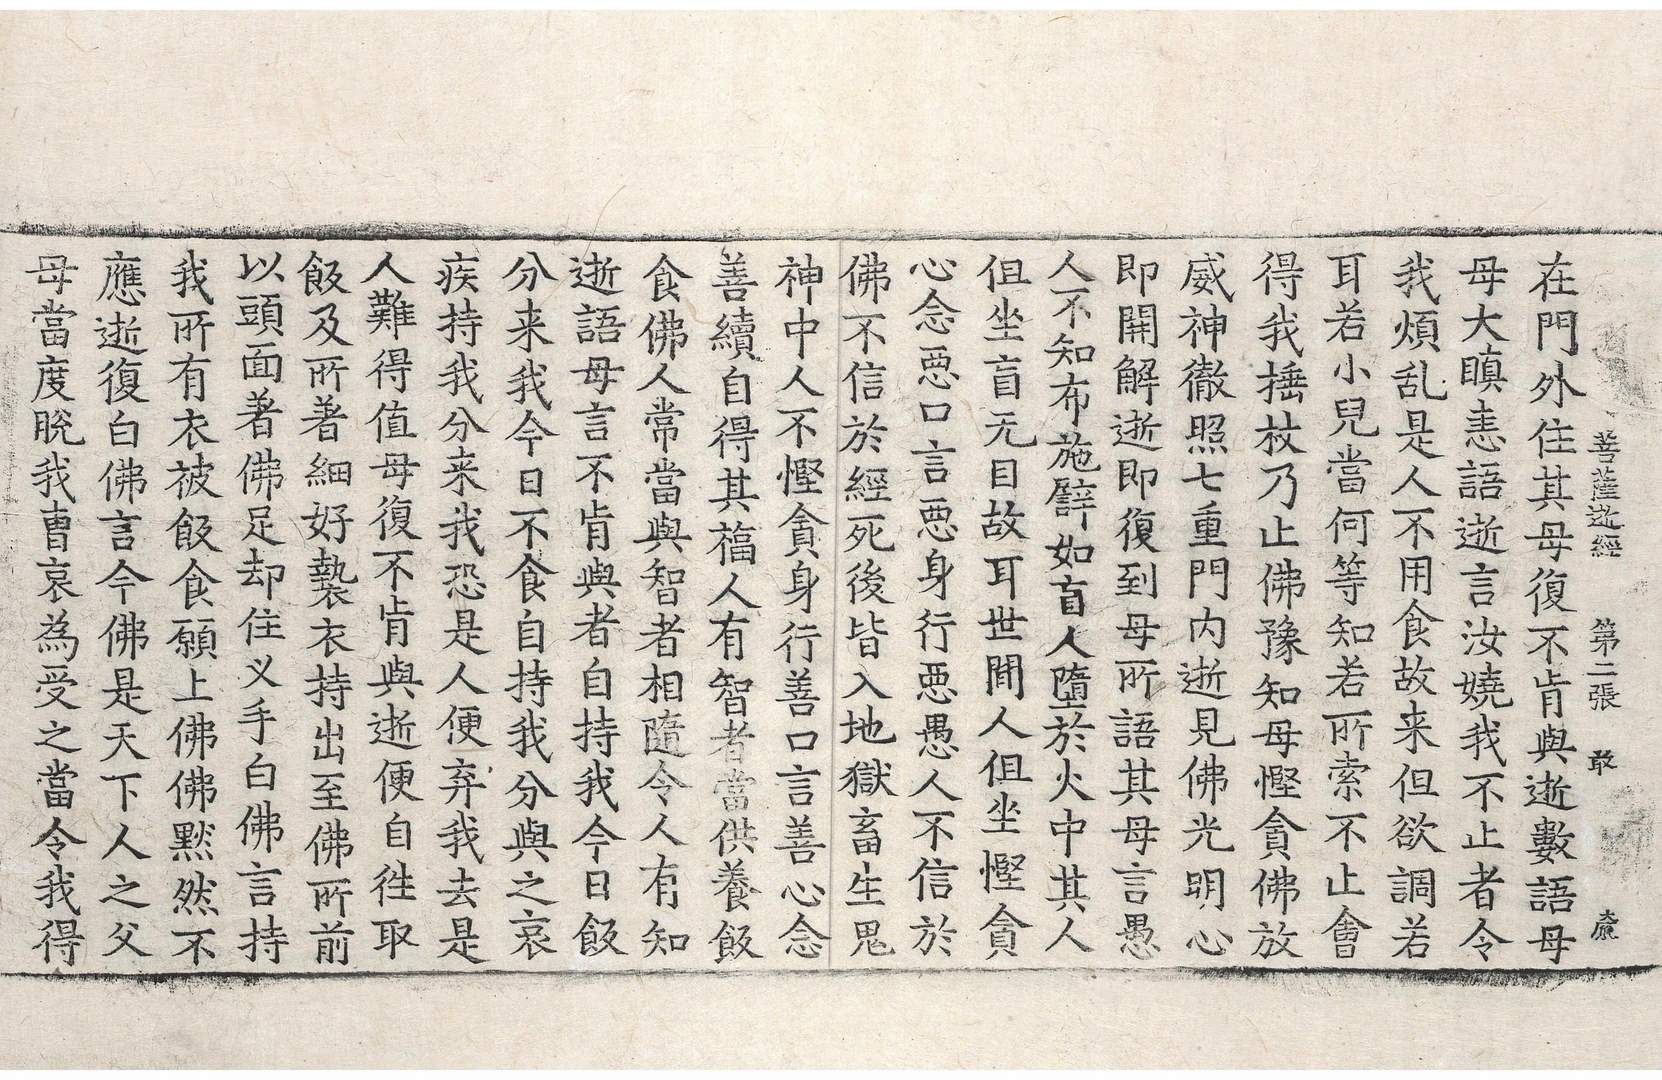 菩薩逝經 第二張 敢
在門外住其母復不肯與逝數語母
母大瞋恚語逝言汝嬈我不止者令
我煩乱是人不用食故来但欲調若
耳若小兒當何等知若所索不止會
得我捶杖乃止佛豫知母慳貪佛放
威神徹照七重門内逝見佛光明心
即開解逝即復到母所語其母言愚
人不知布施譬如盲人墮於火中其人
但坐盲无目故耳世間人但坐慳貪
心念惡口言惡身行惡愚人不信於
佛不信於經死後皆入地獄畜生鬼
神中人不慳貪身行善口言善心念
善續自得其福人有智者當供養飯
食佛人常當與智者相隨令人有知
逝語母言不肯與者自持我今日飯
分来我今日不食自持我分與之哀
疾持我分来我恐是人便弃我去是
人難得值母復不肯與逝便自徃取
飯及所著細好褺衣持出至佛所前
以頭面著佛足却住叉手白佛言持
我所有衣被飯食願上佛佛黙然不
應逝復白佛言今佛是天下人之父
母當度脫我曹哀為受之當令我得